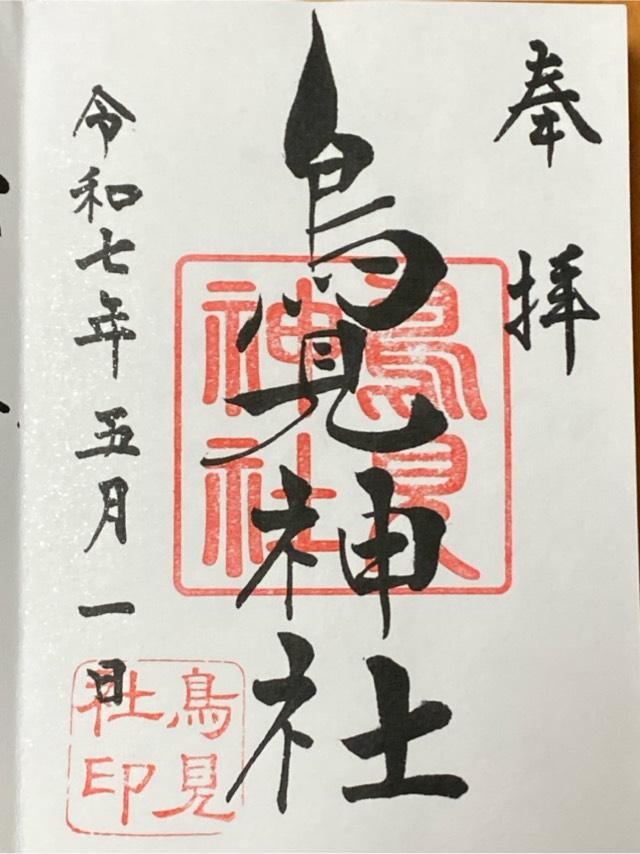 奉拝
鳥見神社
令和七年五月一日
鳥見
神社
鳥見
社印